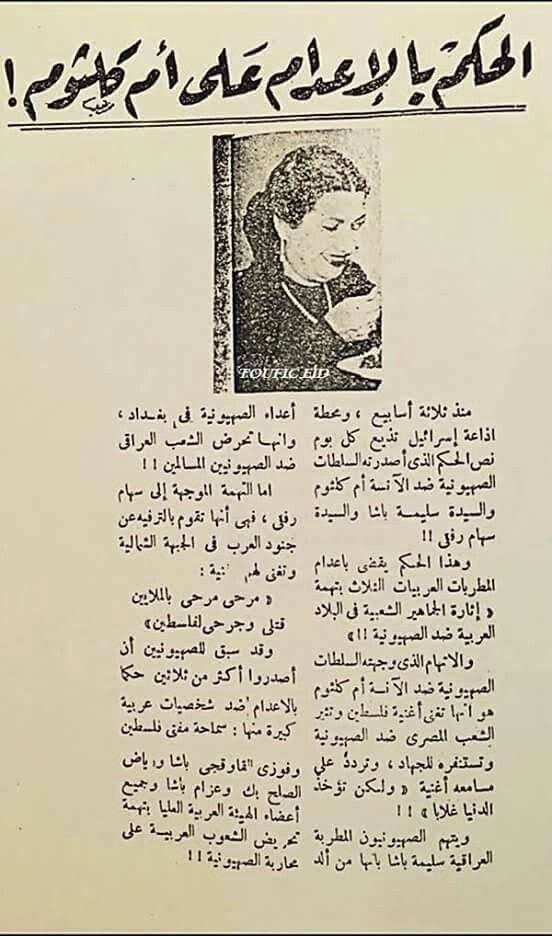 الحكم بالإعدام على أم كلثوم !
TOUFIC EID
منذ ثلاثة أسابيع ، ومحطة
اذاعة إسرائيل تذيع كل يوم
نص الحكم الذى أصدرته السلطات
الصهيونية ضد الآنسة أم كلثوم
والسيدة سليمة باشا والسيدة
سهام رفقى !!
وهذا الحكم يقضى باعدام
المطربات العربيات الثلاث بتهمة
« إثارة الجماهير الشعبية فى البلاد
العربية ضد الصهيونية !! »
والاتهام الذى وجهته السلطات
الصهيونية ضد الآنسة أم كلثوم
هو انها تغنى أغنية فلسطين وتثير
الشعب المصرى ضد الصهيونية
وتستنفره للجهاد ، وتردد على
مسامعه أغنية « ولكن تؤخذ
الدنيا غلابا » !!
ويتهم الصهيونيون المطربة
العراقية سليمة باشا بانها من ألد
أعداء الصهيونية فى بغداد ،
وانها تحرض الشعب العراقى
ضد الصهيونيين المسالمين !!
اما التهمة الموجهة إلى سهام
رفقى ، فهى أنها تقوم بالترفيه عن
جنود العرب فى الجبهة الشمالية
وتغنى لهم
« مرحى مرحى بالملايين
قتلى وجرحى لفلسطين »
وقد سبق للصهيونيين أن
أصدروا أكثر من ثلاثين حكما
بالاعدام ضد شخصيات عربية
كبيرة منها : سماحة مفتى فلسطين
وفوزى القاوقجى باشا ورياض
الصلح بك وعزام باشا وجميع
أعضاء الهيئة العربية العليا بتهمة
تحريض الشعوب العربية على
محاربة الصهيونية !!